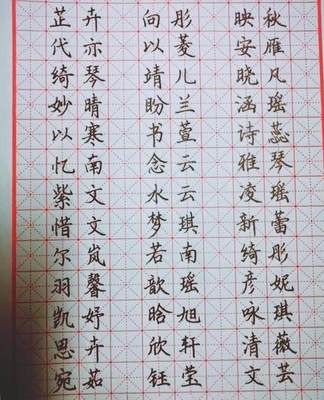 芷卉 向彤 映秋
代亦 以菱 安雁
绮琴 靖儿 晓凡
妙晴 盼兰 涵瑶
以寒 书萱 诗蕊
忆南 念云 雅琴
紫文 水云 凌瑶
惜文 梦琪 新蕾
尔岚 若南 绮彤
羽馨 歆瑶 彦妮
凯妤 晗旭 咏琪
思卉 欣轩 清薇
宛茹 钰莹 文芸